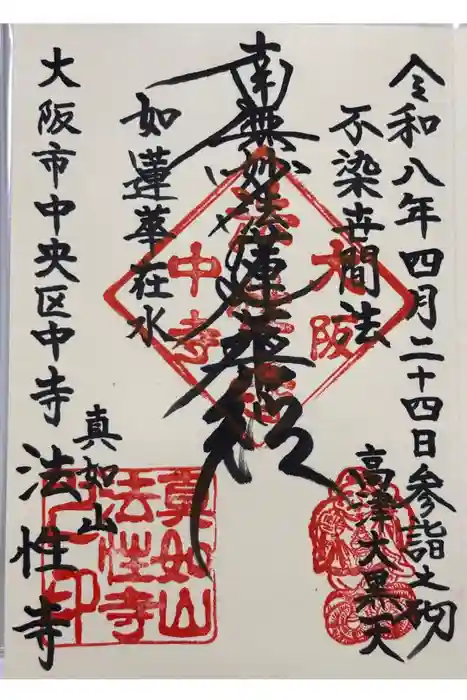 令和八年四月二十四日参詣之砌
高津大黒天
不染世間法
南無妙法蓮華経
如蓮華在水
大阪市中央区中寺
真如山
法性寺
大阪
中寺
真如山
法性寺